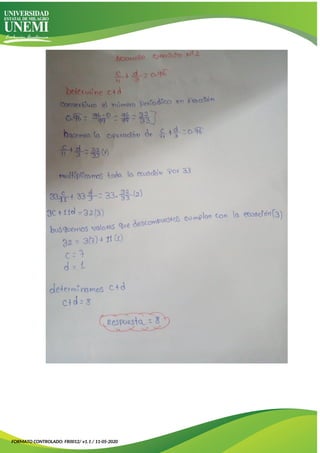 UNIVERSIDAD
ESTATAL DE MILAGRO
UNEMI
Ejercicio N°2
c/11 + d/3 = 0.96
Determine c+d
convertimos el número periódico en fracción
0.96 = 96-0/99 = 96/99 = 32/33
hacemos la operación de c/11 + d/3 = 0.96
c/11 + d/3 = 32/33 (1)
multiplicamos toda la ecuación por 33
33 c/11 + 33 d/3 = 33. 32/33 (2)
3c + 11d = 32 (3)
buscamos valores que descompuestos cumplan con la ecuación (3)
32 = 3(7) + 11(1)
c = 7
d = 1
determinamos c+d
c+d = 8
Respuesta = 8
FORMATO CONTROLADO: FR0012/ v1.1 / 11-05-2020